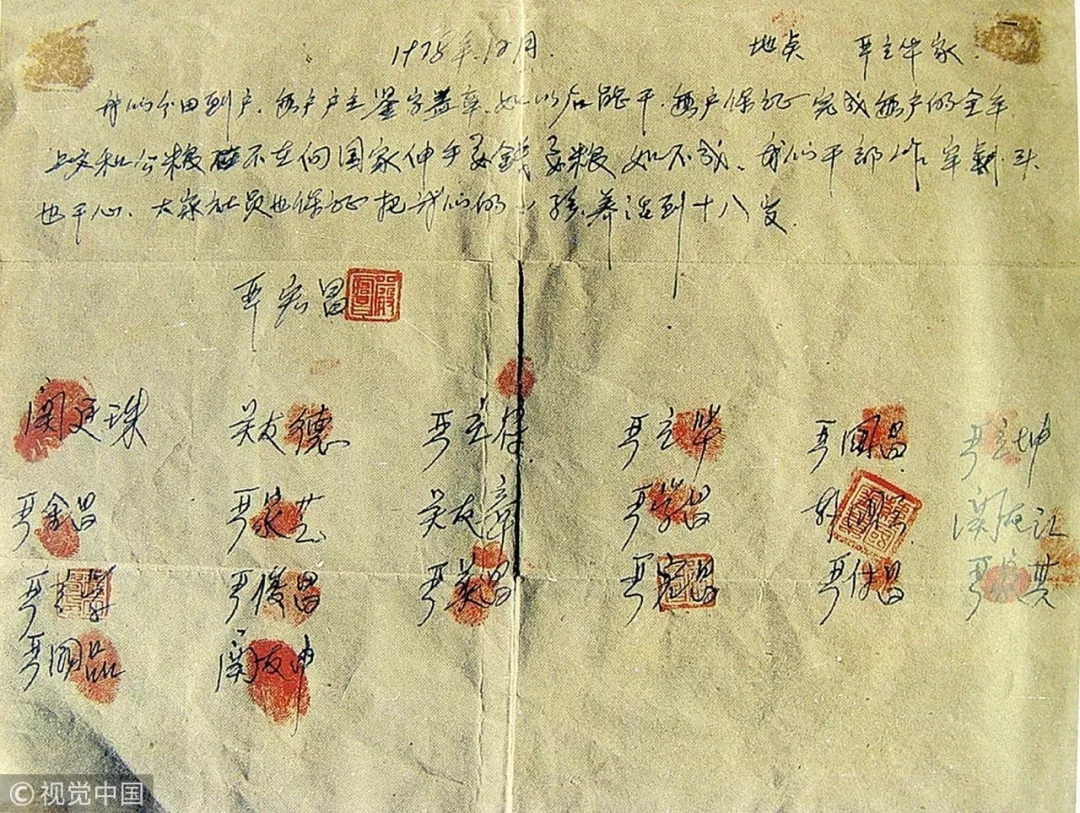 1978年12月. 地点 严立华家.
我们分田到户,每户户主鉴字盖章,如以后能干,每户保证完成每户的全年
上交和公粮 不在向国家伸手要钱要粮 如不成,我们干部作牢杀头
也干心,大家社员也保证把我们的小孩养活到十八岁.
严宏昌
关廷珠 关友德 严立符 严立华 严国昌 严立坤
严金昌 严家芝 关友章 严学昌 韩国云 关友江
严立学 严俊昌 严美昌 严宏昌 严付昌 严家其
严国品 关友申
© 视觉中国